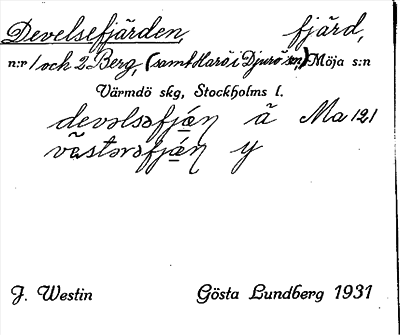 Develsefjärden, fjärd,
n:r 1 och 2 Berg, (samt Harö i Djurö sn,) Möja s:n
Värmdö skg, Stockholms l.
devəlsəfjæ̱ɳ ä Ma 121
västərəfjæ̱ɳ y
J. Westin Gösta Lundberg 1931